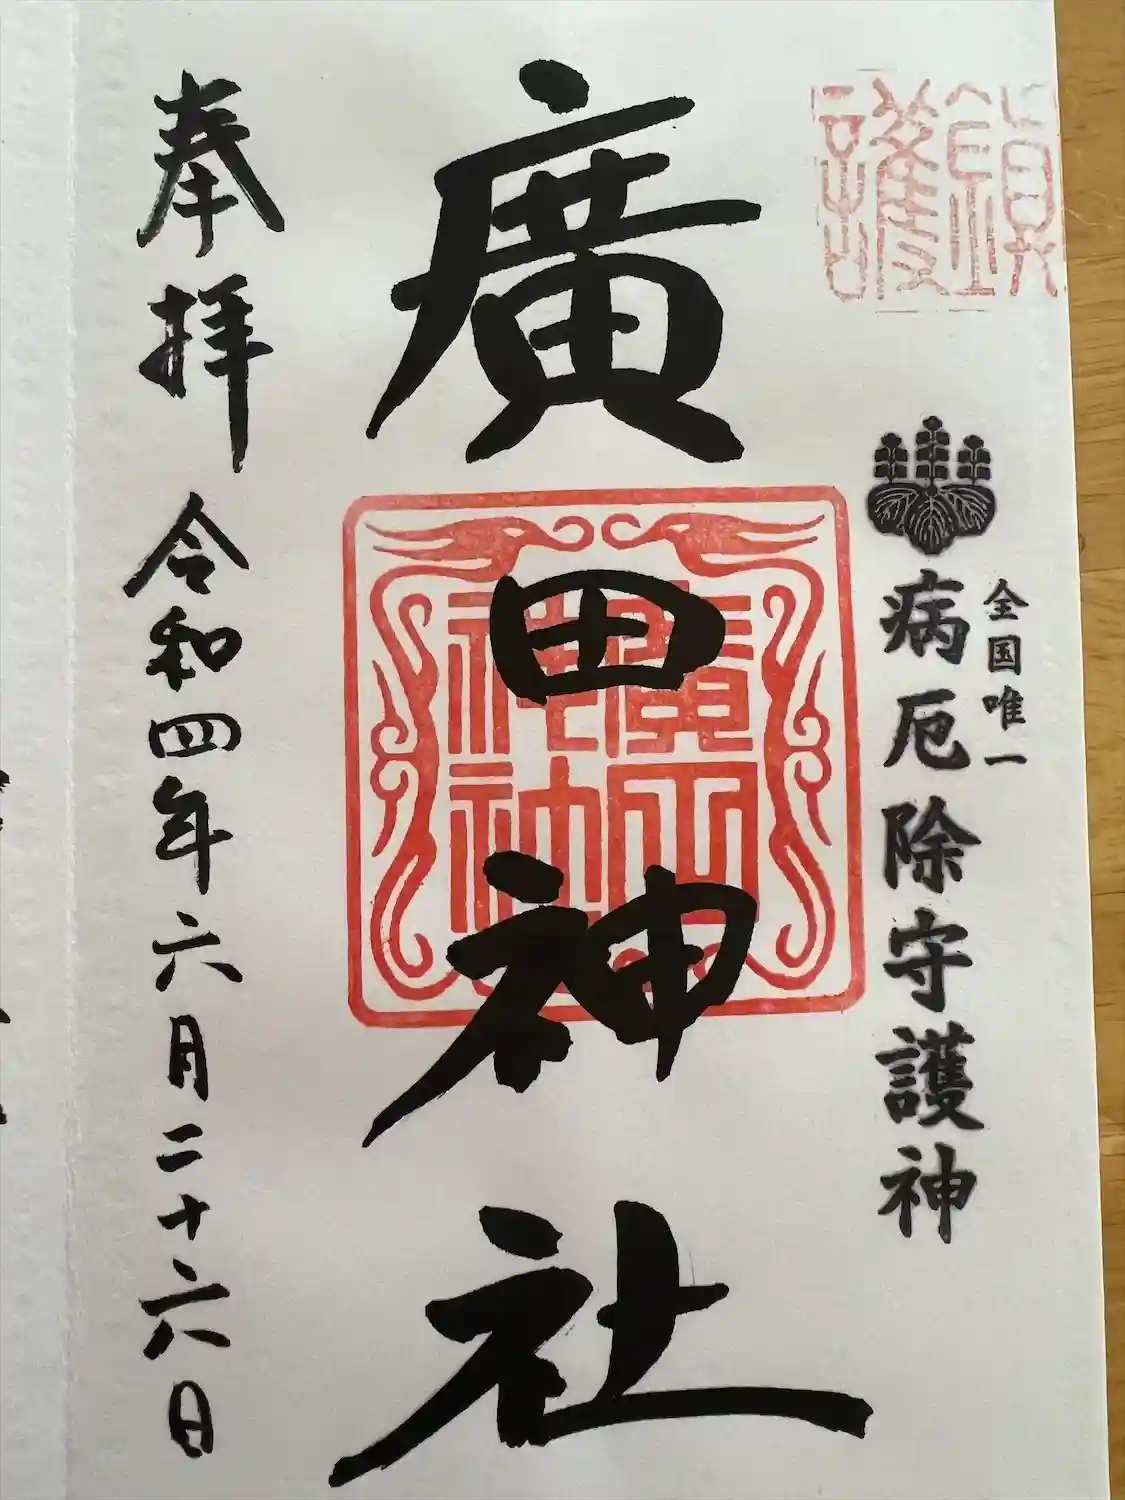 鎮護
全国唯一
病厄除守護神
廣田神社
廣田神社
奉拝 令和四年六月二十六日